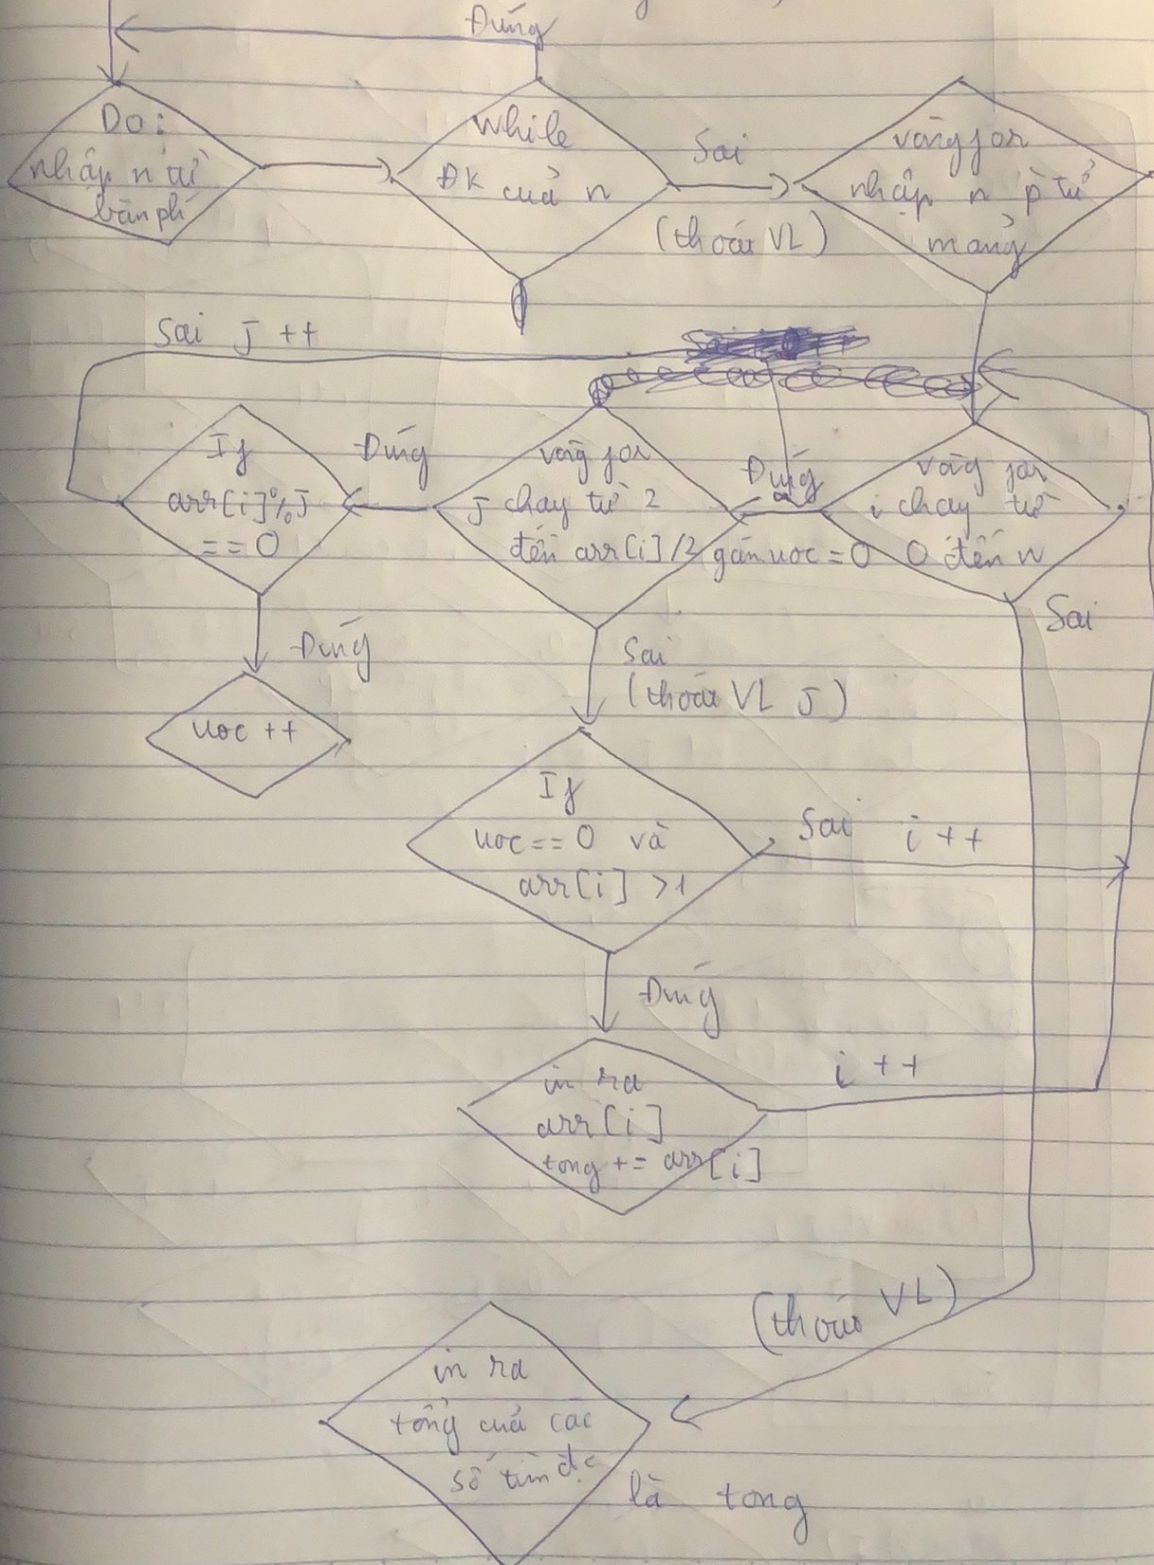 Đúng
Do:
nhập n từ
bàn phí
While
ĐK của n
Sai
(thoát VL)
vòng for
nhập n p tử
mảng
Sai j ++
If
arr[i]%j
==0
Đúng
vòng for
j chạy từ 2
đến arr[i]/2
Đúng
gán uoc=0
vòng for
i chạy từ
0 đến n
Sai
Đúng
uoc ++
Sai
(thoát VL j)
If
uoc==0 và
arr[i] >1
Sai i ++
Đúng
in ra
arr[i]
tong += arr[i]
i ++
(thoát VL)
in ra
tổng của các
số tìm đc
là tong